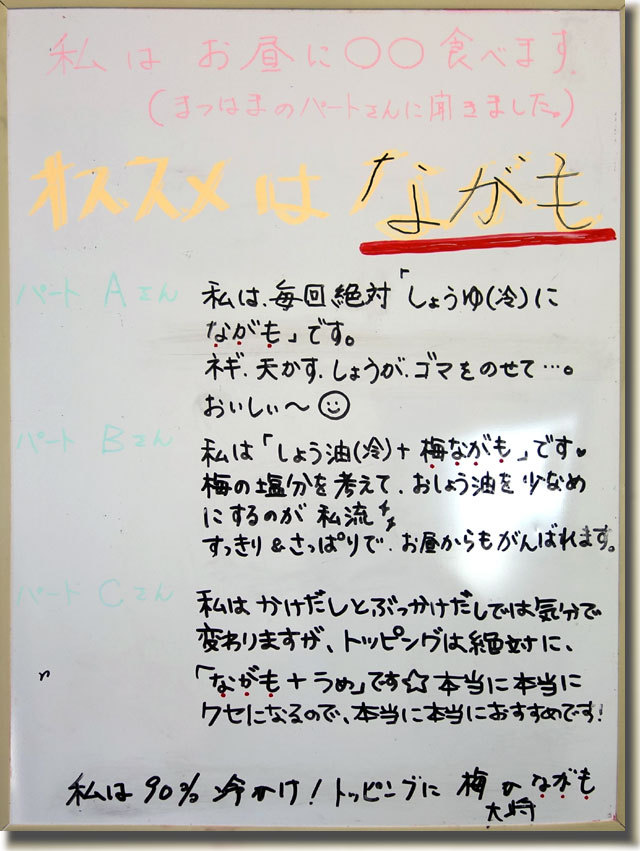 私は お昼に〇〇食べます。
(まつはまのパートさんに聞きました。)
オススメは ながも
パート Aさん
私は、毎回絶対「しょうゆ(冷)に
ながも」です。
ネギ、天かす、しょうが、ゴマをのせて…。
おいしい〜☺
パート Bさん
私は「しょう油(冷)+梅ながも」です♥
梅の塩分を考えて、おしょう油を少なめ
にするのが 私流
すっきり&さっぱりで、お昼からもがんばれます。
パート Cさん
私は かけだしとぶっかけだしでは気分で
変わりますが、トッピングは絶対に、
「ながも+うめ」です☆ 本当に本当に
クセになるので、本当に本当におすすめです!
私は 90% 冷かけ! トッピングに 梅 か ながも
大将